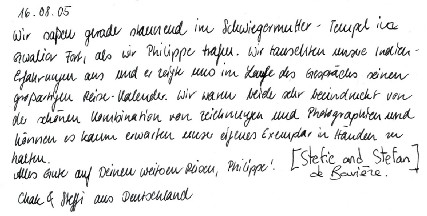 16.08.05
Wir saßen gerade staunend im Schwiegermutter-Tempel im
Gwalior Fort, als wir Philippe trafen. Wir tauschten unsere Indien-
Erfahrungen aus und er zeigte uns im Laufe des Gesprächs seinen
großartigen Reise-Kalender. Wir waren beide sehr beeindruckt von
der schönen Kombination von Zeichnungen und Photographien und
können es kaum erwarten unser eigenes Exemplar in Händen zu
halten.
Alles Gute auf Deinen weiteren Reisen, Philippe!
[Steffie and Stefan
de Bavière.
& Steffi aus Deutschland